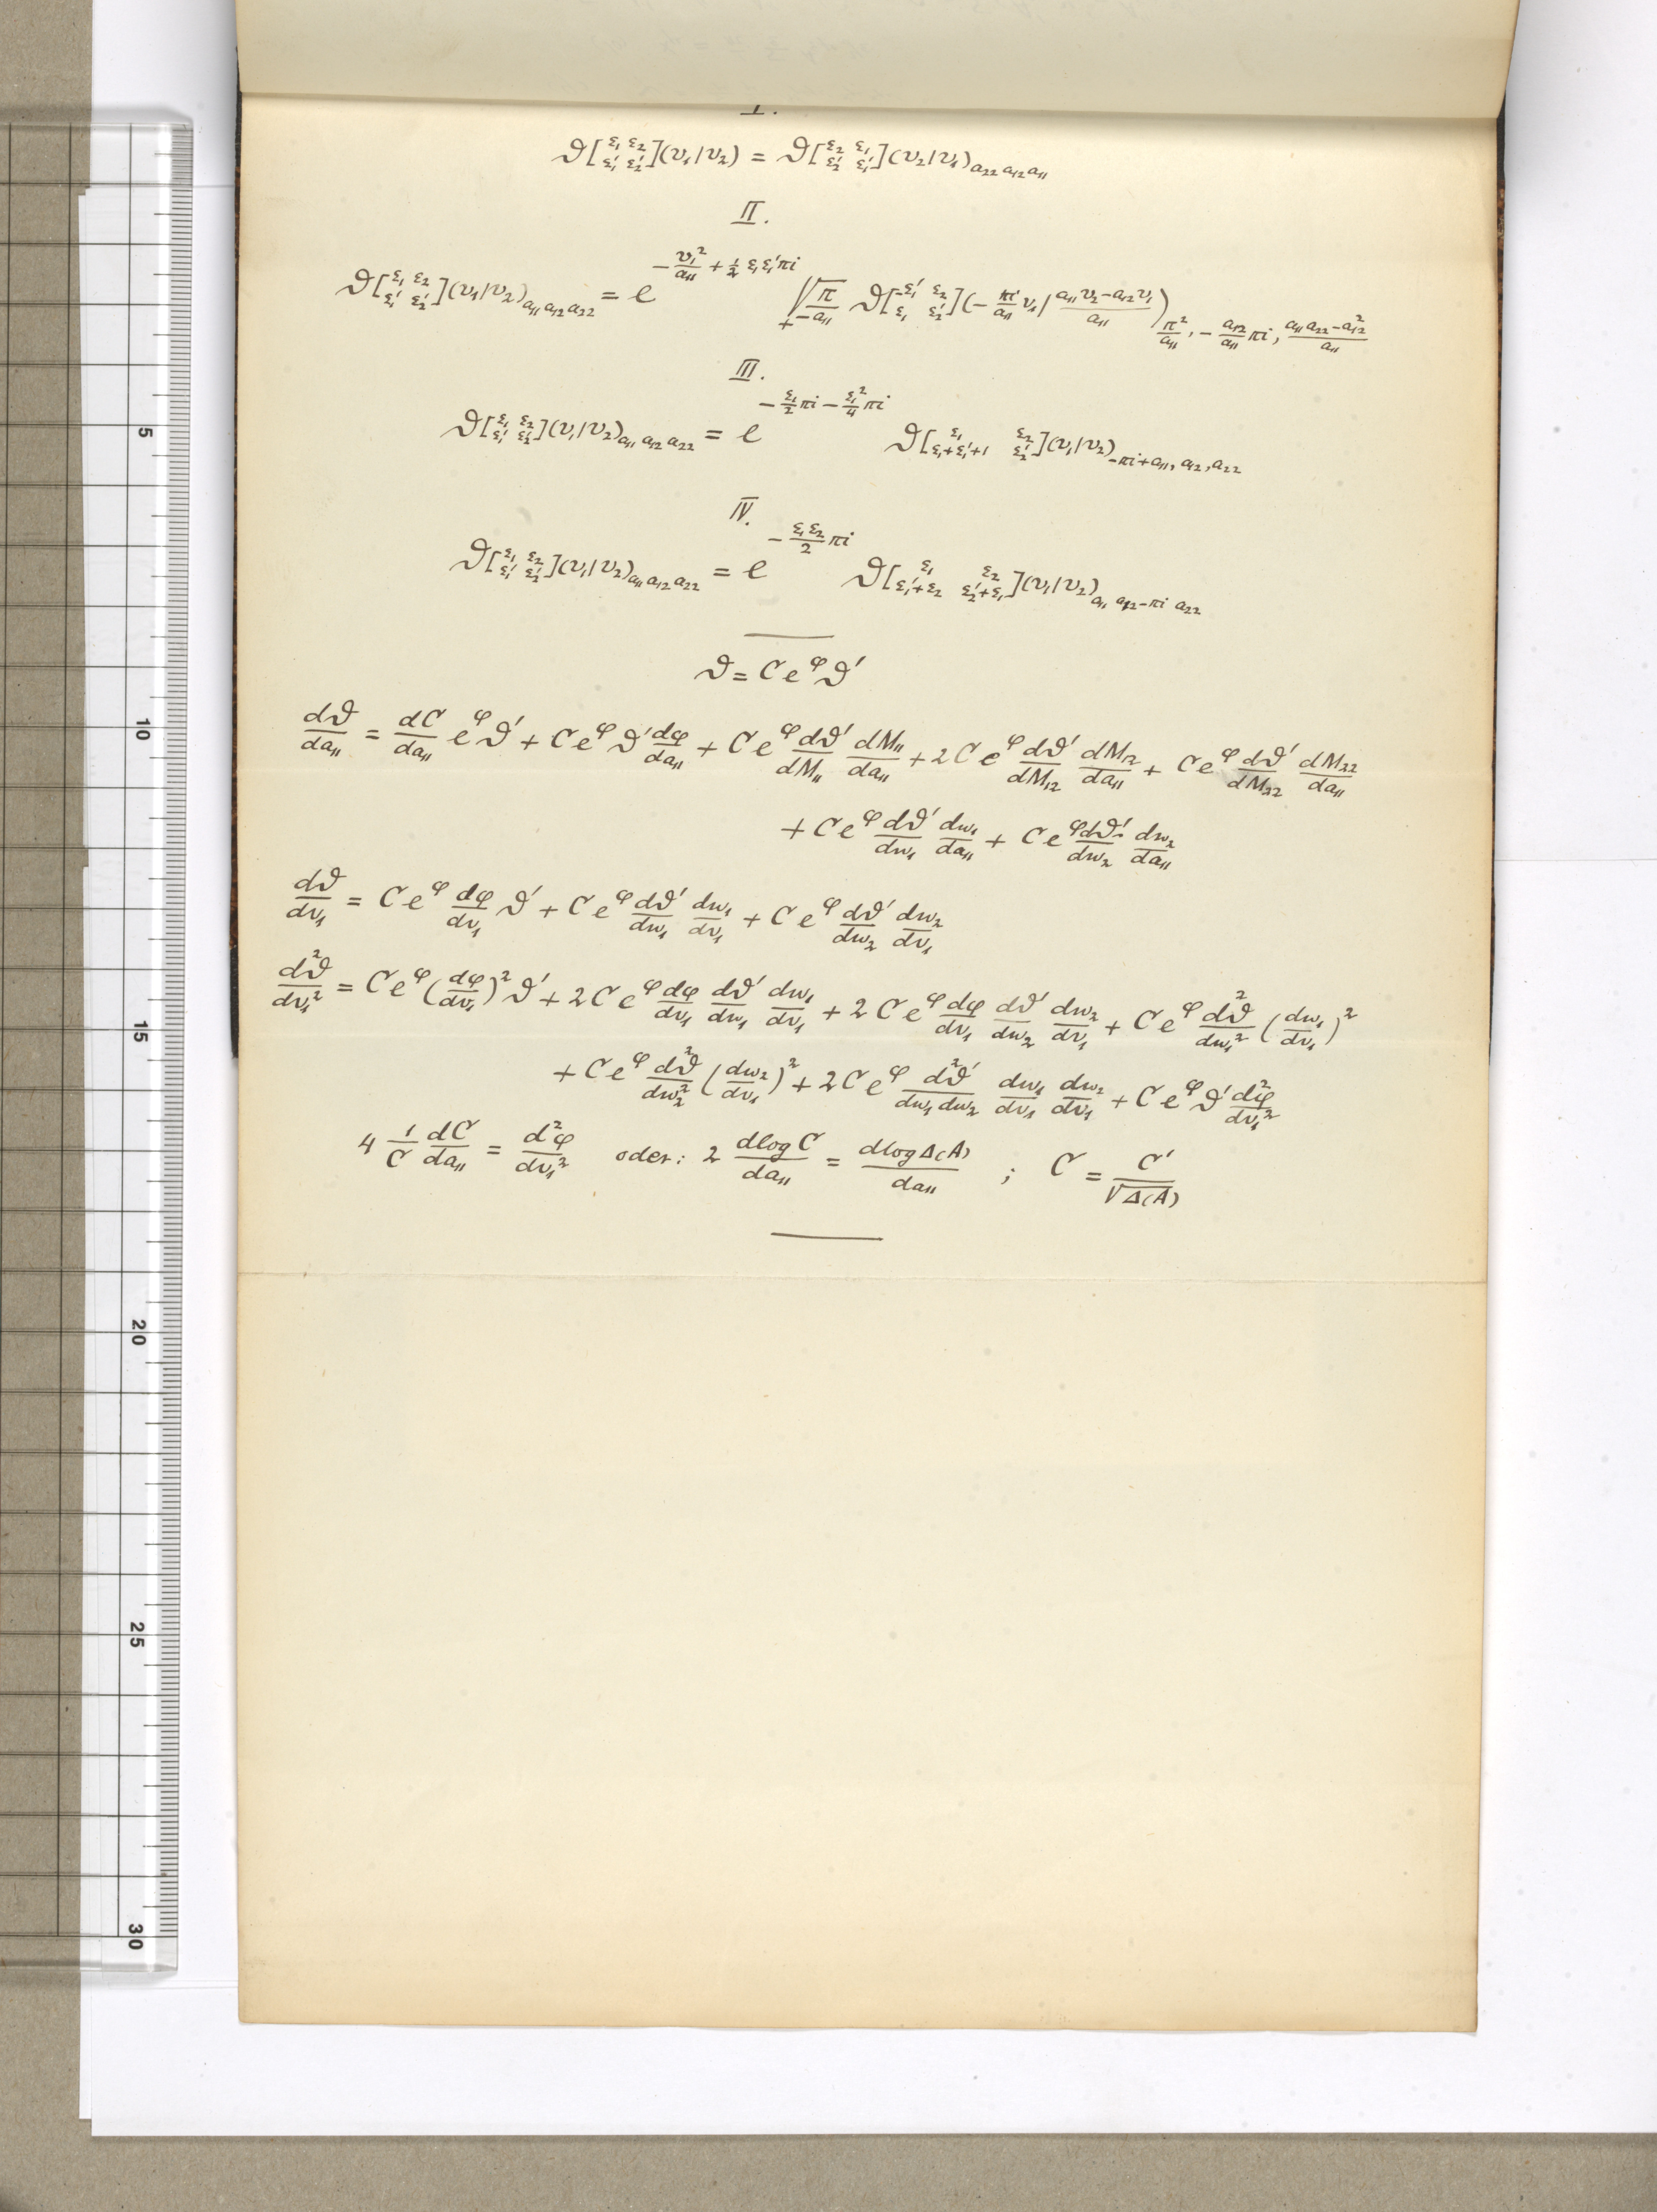 I.
ϑ[ε₁ ε₂ ε₁′ ε₂′](v₁|v₂) = ϑ[ε₂ ε₁ ε₂′ ε₁′](v₂|v₁)_{a₂₂ a₁₂ a₁₁}
II.
ϑ[ε₁ ε₂ ε₁′ ε₂′](v₁|v₂)_{a₁₁ a₁₂ a₂₂} = e^{-v₁²/a₁₁ + ½ ε₁ε₁′πi} √(π/-a₁₁) ϑ[-ε₁′ ε₂ ε₁ ε₂′](-πi/a₁₁ v₁ | (a₁₁v₂-a₁₂v₁)/a₁₁)_{π²/a₁₁, -a₁₂/a₁₁ πi, (a₁₁a₂₂-a₁₂²)/a₁₁}
III.
ϑ[ε₁ ε₂ ε₁′ ε₂′](v₁|v₂)_{a₁₁ a₁₂ a₂₂} = e^{-ε₁/2 πi - ε₁²/4 πi} ϑ[ε₁ ε₂ ε₁+ε₁′+1 ε₂′](v₁|v₂)_{-πi+a₁₁, a₁₂, a₂₂}
IV.
ϑ[ε₁ ε₂ ε₁′ ε₂′](v₁|v₂)_{a₁₁ a₁₂ a₂₂} = e^{-ε₁ε₂/2 πi} ϑ[ε₁ ε₂ ε₁′+ε₂ ε₂′+ε₁](v₁|v₂)_{a₁₁ a₁₂-πi a₂₂}
ϑ = C e^φ ϑ′
dϑ/da₁₁ = dC/da₁₁ e^φ ϑ′ + C e^φ ϑ′ dφ/da₁₁ + C e^φ dϑ′/dM₁₁ dM₁₁/da₁₁ + 2 C e^φ dϑ′/dM₁₂ dM₁₂/da₁₁ + C e^φ dϑ′/dM₂₂ dM₂₂/da₁₁
+ C e^φ dϑ′/dw₁ dw₁/da₁₁ + C e^φ dϑ′/dw₂ dw₂/da₁₁
dϑ/dv₁ = C e^φ dφ/dv₁ ϑ′ + C e^φ dϑ′/dw₁ dw₁/dv₁ + C e^φ dϑ′/dw₂ dw₂/dv₁
d²ϑ/dv₁² = C e^φ (dφ/dv₁)² ϑ′ + 2 C e^φ dφ/dv₁ dϑ′/dw₁ dw₁/dv₁ + 2 C e^φ dφ/dv₁ dϑ′/dw₂ dw₂/dv₁ + C e^φ d²ϑ/dw₁² (dw₁/dv₁)²
+ C e^φ d²ϑ/dw₂² (dw₂/dv₁)² + 2 C e^φ d²ϑ′/dw₁dw₂ dw₁/dv₁ dw₂/dv₁ + C e^φ ϑ′ d²φ/dv₁²
4 1/C dC/da₁₁ = d²φ/dv₁² oder: 2 dlog C/da₁₁ = dlog Δ(A)/da₁₁ ; C = C′/√Δ(A)
5
10
15
20
25
30